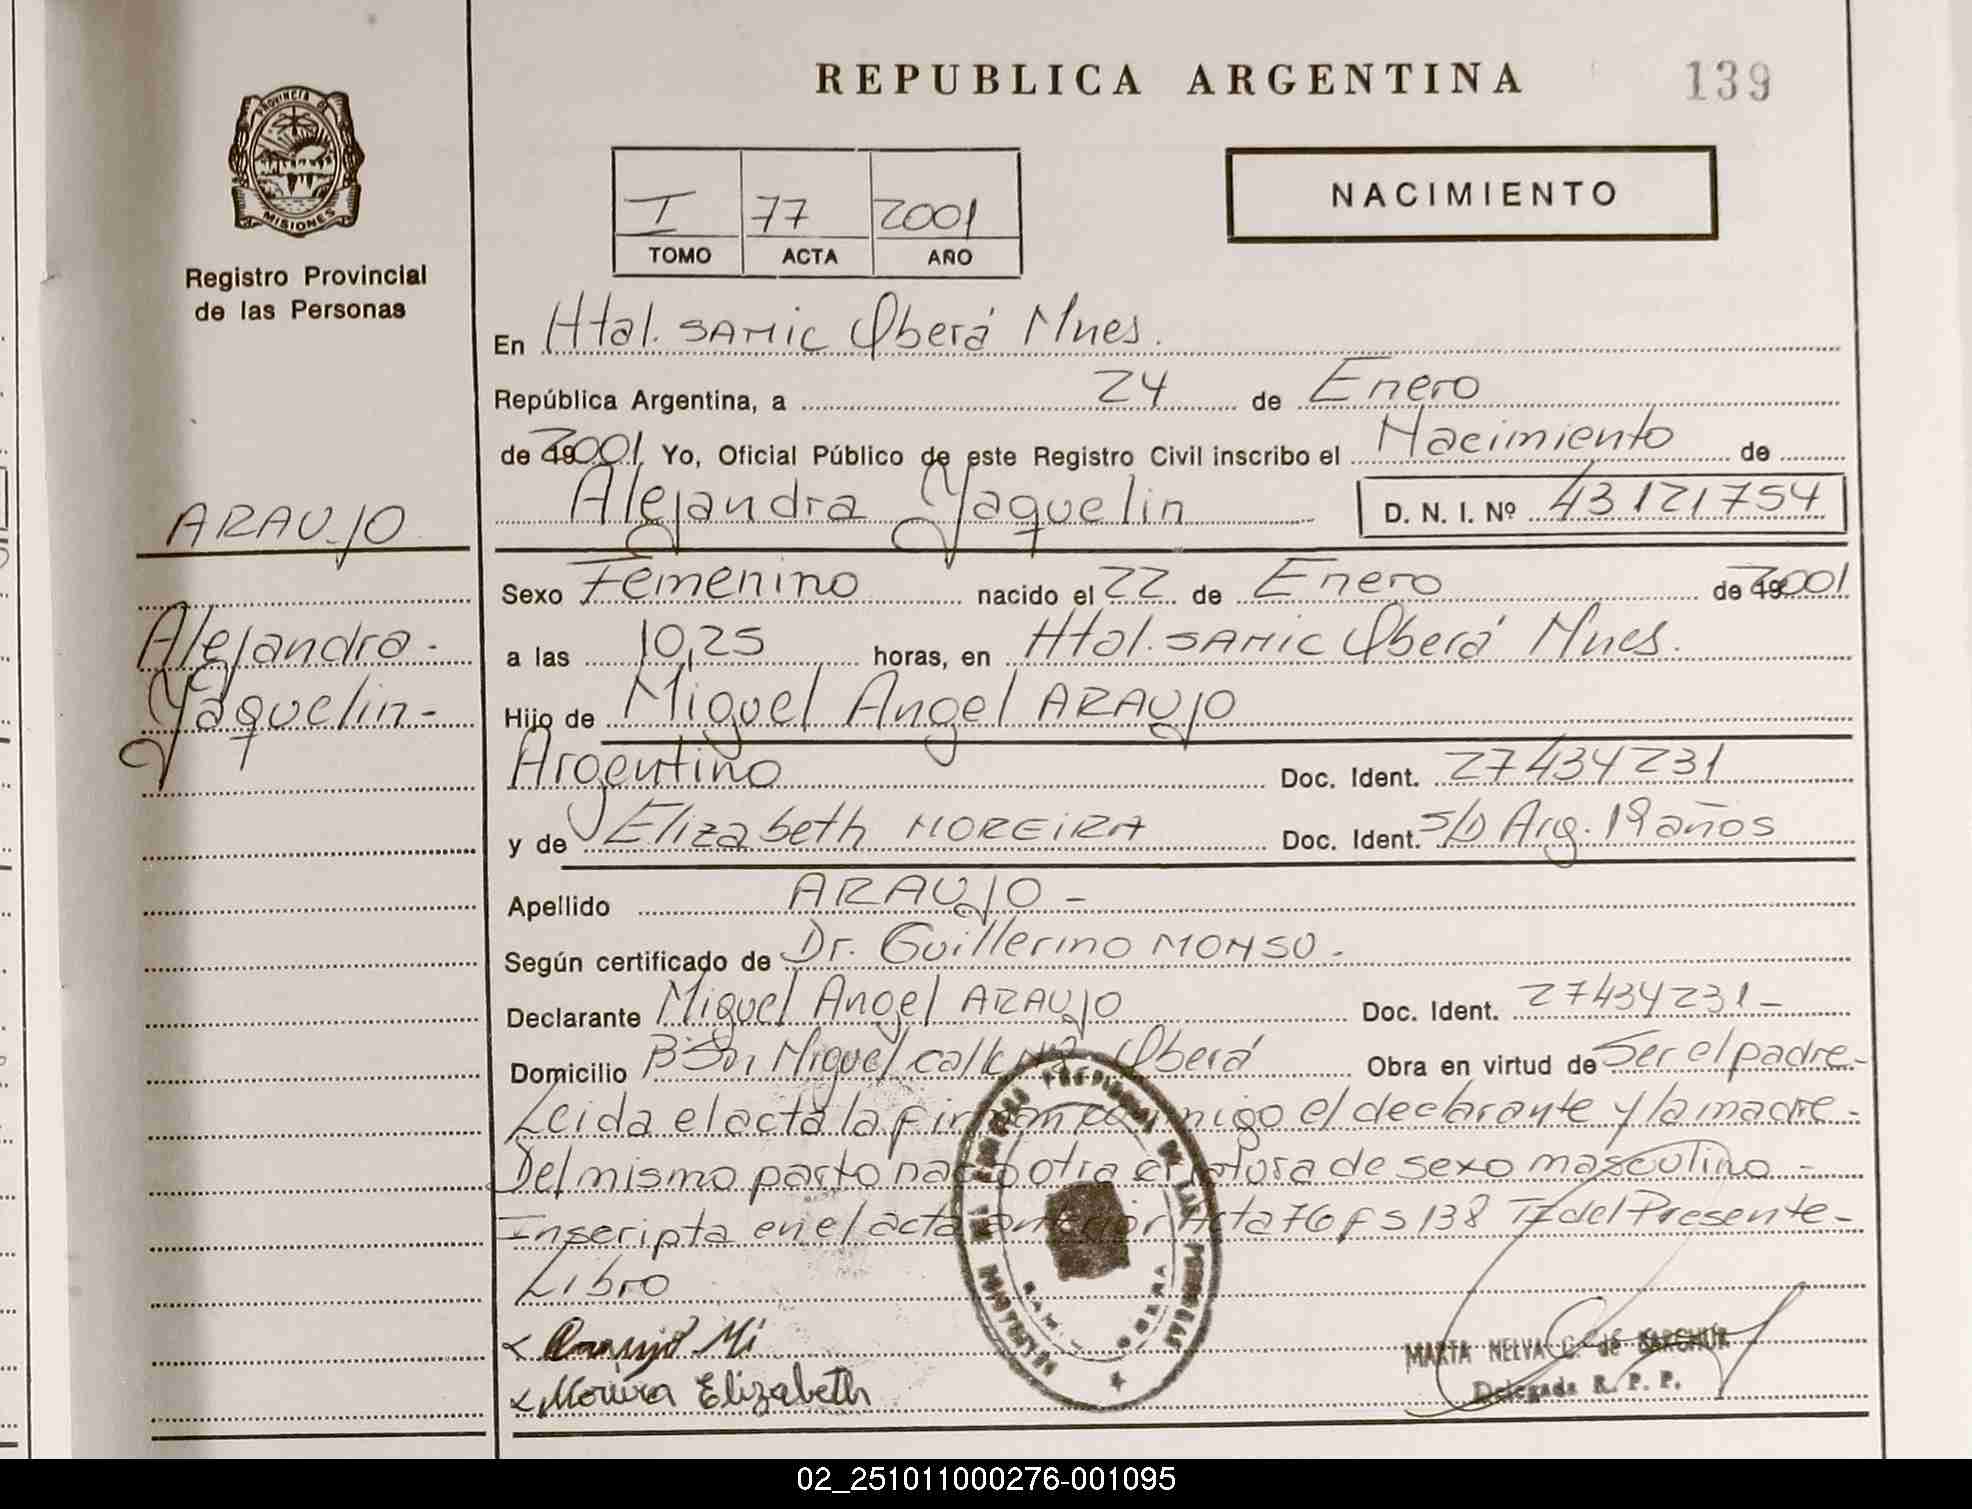 REPUBLICA ARGENTINA
139
PROVINCIA DE
MISIONES
Registro Provincial
de las Personas
I 77 2001
TOMO ACTA AÑO
NACIMIENTO
En Htal. SAMIC Oberá Mnes.
República Argentina, a 24 de Enero
de 2001 Yo, Oficial Público de este Registro Civil inscribo el Nacimiento de
Alejandra Yaquelin D. N. I. Nº 43121754
ARAUJO
Alejandra -
Yaquelin -
Sexo Femenino nacido el 22 de Enero de 2001
a las 10,25 horas, en Htal. SAMIC Oberá Mnes.
Hijo de Miguel Angel ARAUJO
Argentino Doc. Ident. 27434231
y de Elizabeth MOREIRA Doc. Ident. S/D Arg. 19 años
Apellido ARAUJO -
Según certificado de Dr. Guillermo MONSO -
Declarante Miguel Angel ARAUJO Doc. Ident. 27434231 -
Domicilio Bº San Miguel calle Oberá Obra en virtud de Ser el padre -
Leida el acta la firman conmigo el declarante y la madre -
Del mismo parto nacio otra criatura de sexo masculino -
Inscripta en el acta anterior Acta 76 fs 138 TI del Presente -
Libro
Araujo Mi
Moreira Elizabeth
MARTA NELVA G. de
Delegada R. P. P.
02_251011000276-001095